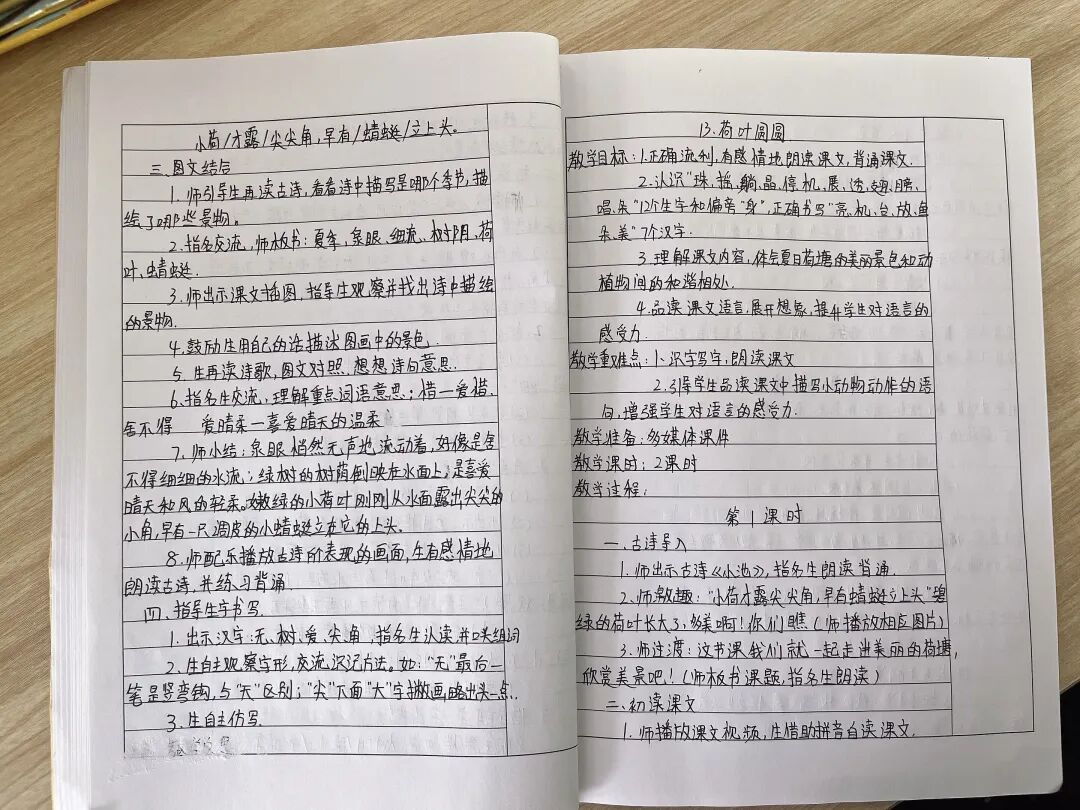 小荷/才露/尖尖角,早有/蜻蜓/立上头。
三.图文结合
1.师引导生再读古诗,看看诗中描写是哪个季节,描
绘了哪些景物。
2.指名交流,师板书:夏季,泉眼,细流,树阴,荷
叶,蜻蜓.
3.师出示课文插图,指导生观察并找出诗中描绘
的景物.
4.鼓励生用自己的话描述图画中的景色.
5.生再读诗歌,图文对照,想想诗句意思.
6.指名生交流,理解重点词语意思:惜一爱惜,
舍不得 爱晴柔一喜爱晴天的温柔
7.师小结:泉眼悄然无声地流动着,好像是舍
不得细细的水流,;绿树的树荫倒映在水面上,是喜爱
晴天和风的轻柔。嫩绿的小荷叶刚刚从水面露出尖尖的
小角,早有一只调皮的小蜻蜓立在它的上头。
8.师配乐播放古诗所表现的画面,生有感情地
朗读古诗,并练习背诵.
四.指导生字书写.
1.出示汉字:无、树、爱、尖、角,指名生认读,并口头组词
2.生自主观察字形,交流识记方法。如:"无"最后一
笔是竖弯钩,与"天"区别;"尖"下面"大"字撇画略出头一点.
3.生自主仿写.
13.荷叶圆圆
教学目标:1.正确流利,有感情地朗读课文,背诵课文.
2.认识"珠、摇、躺、晶、停、机、展、透、翅、膀、
唱、朵"12个生字和偏旁"身",正确书写"亮、机、台、放、鱼
朵、美"7个汉字.
3.理解课文内容,体会夏日荷塘的美丽景色和动
植物间的和谐相处.
4.品读课文语言,展开想象,提升学生对语言的
感受力.
教学重难点:1.识字写字,朗读课文
2.引导学生品读课文中描写小动物动作的语
句,增强学生对语言的感受力.
教学准备:多媒体课件
教学课时:2课时
教学过程:
第1课时
一.古诗导入
1.师出示古诗《小池》,指名生朗读背诵.
2.师激趣:"小荷才露尖尖角,早有蜻蜓立上头"碧
绿的荷叶长大了,多美啊!你们瞧(师播放相应图片)
3.师过渡:这节课我们就一起走进美丽的荷塘,
欣赏美景吧!(师板书课题,指名生朗读)
二.初读课文
1.师播放课文视频,生借助拼音自读课文.